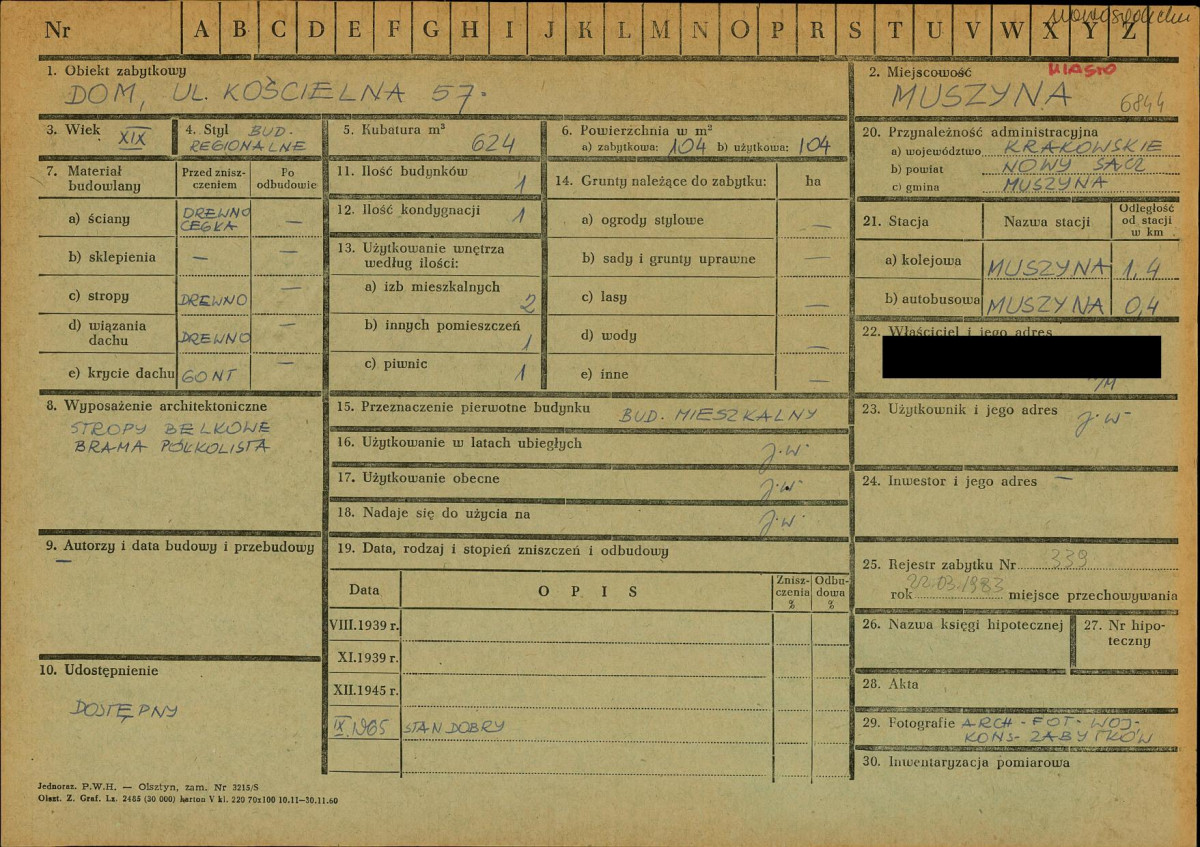 Nr A B C D E F G H I J K L M N O P R S T U V W X Y Z
1. Obiekt zabytkowy
DOM, UL. KOŚCIELNA 57.
2. Miejscowość
MIASTO
MUSZYNA 6844
3. Wiek
XIX
4. Styl BUD.
REGIONALNE
5. Kubatura m³
624
6. Powierzchnia w m²
a) zabytkowa: 104 b) użytkowa: 104
20. Przynależność administracyjna
a) województwo KRAKOWSKIE
b) powiat NOWY SĄCZ
c) gmina MUSZYNA
7. Materiał
budowlany
Przed znisz-
czeniem
Po
odbudowie
a) ściany DREWNO
CEGŁA —
b) sklepienia — —
c) stropy DREWNO —
d) wiązania
dachu DREWNO —
e) krycie dachu GONT —
11. Ilość budynków 1
12. Ilość kondygnacji 1
13. Użytkowanie wnętrza
według ilości:
a) izb mieszkalnych 2
b) innych pomieszczeń 1
c) piwnic 1
14. Grunty należące do zabytku: ha
a) ogrody stylowe —
b) sady i grunty uprawne —
c) lasy —
d) wody —
e) inne —
21. Stacja Nazwa stacji Odległość
od stacji
w km
a) kolejowa MUSZYNA 1,4
b) autobusowa MUSZYNA 0,4
22. Właściciel i jego adres
8. Wyposażenie architektoniczne
STROPY BELKOWE
BRAMA PÓŁKOLISTA
15. Przeznaczenie pierwotne budynku BUD. MIESZKALNY
16. Użytkowanie w latach ubiegłych j.w.
17. Użytkowanie obecne j.w.
18. Nadaje się do użycia na j.w.
23. Użytkownik i jego adres
j.w.
24. Inwestor i jego adres —
9. Autorzy i data budowy i przebudowy
—
19. Data, rodzaj i stopień zniszczeń i odbudowy
Data OPIS Znisz-
czenia
%
Odbu-
dowa
%
VIII.1939 r.
XI.1939 r.
XII.1945 r.
IX.1965 STAN DOBRY
25. Rejestr zabytku Nr 339
rok 22.03.1983 miejsce przechowywania
26. Nazwa księgi hipotecznej
27. Nr hipo-
teczny
10. Udostępnienie
DOSTĘPNY
28. Akta
29. Fotografie ARCH - FOT - WOJ-
KONS- ZABYTKÓW
30. Inwentaryzacja pomiarowa
Jednoraz. P.W.H. — Olsztyn, zam. Nr 3215/S
Olszt. Z. Graf. Lz. 2485 (30 000) karton V kl. 220 70x100 10.11—30.11.60